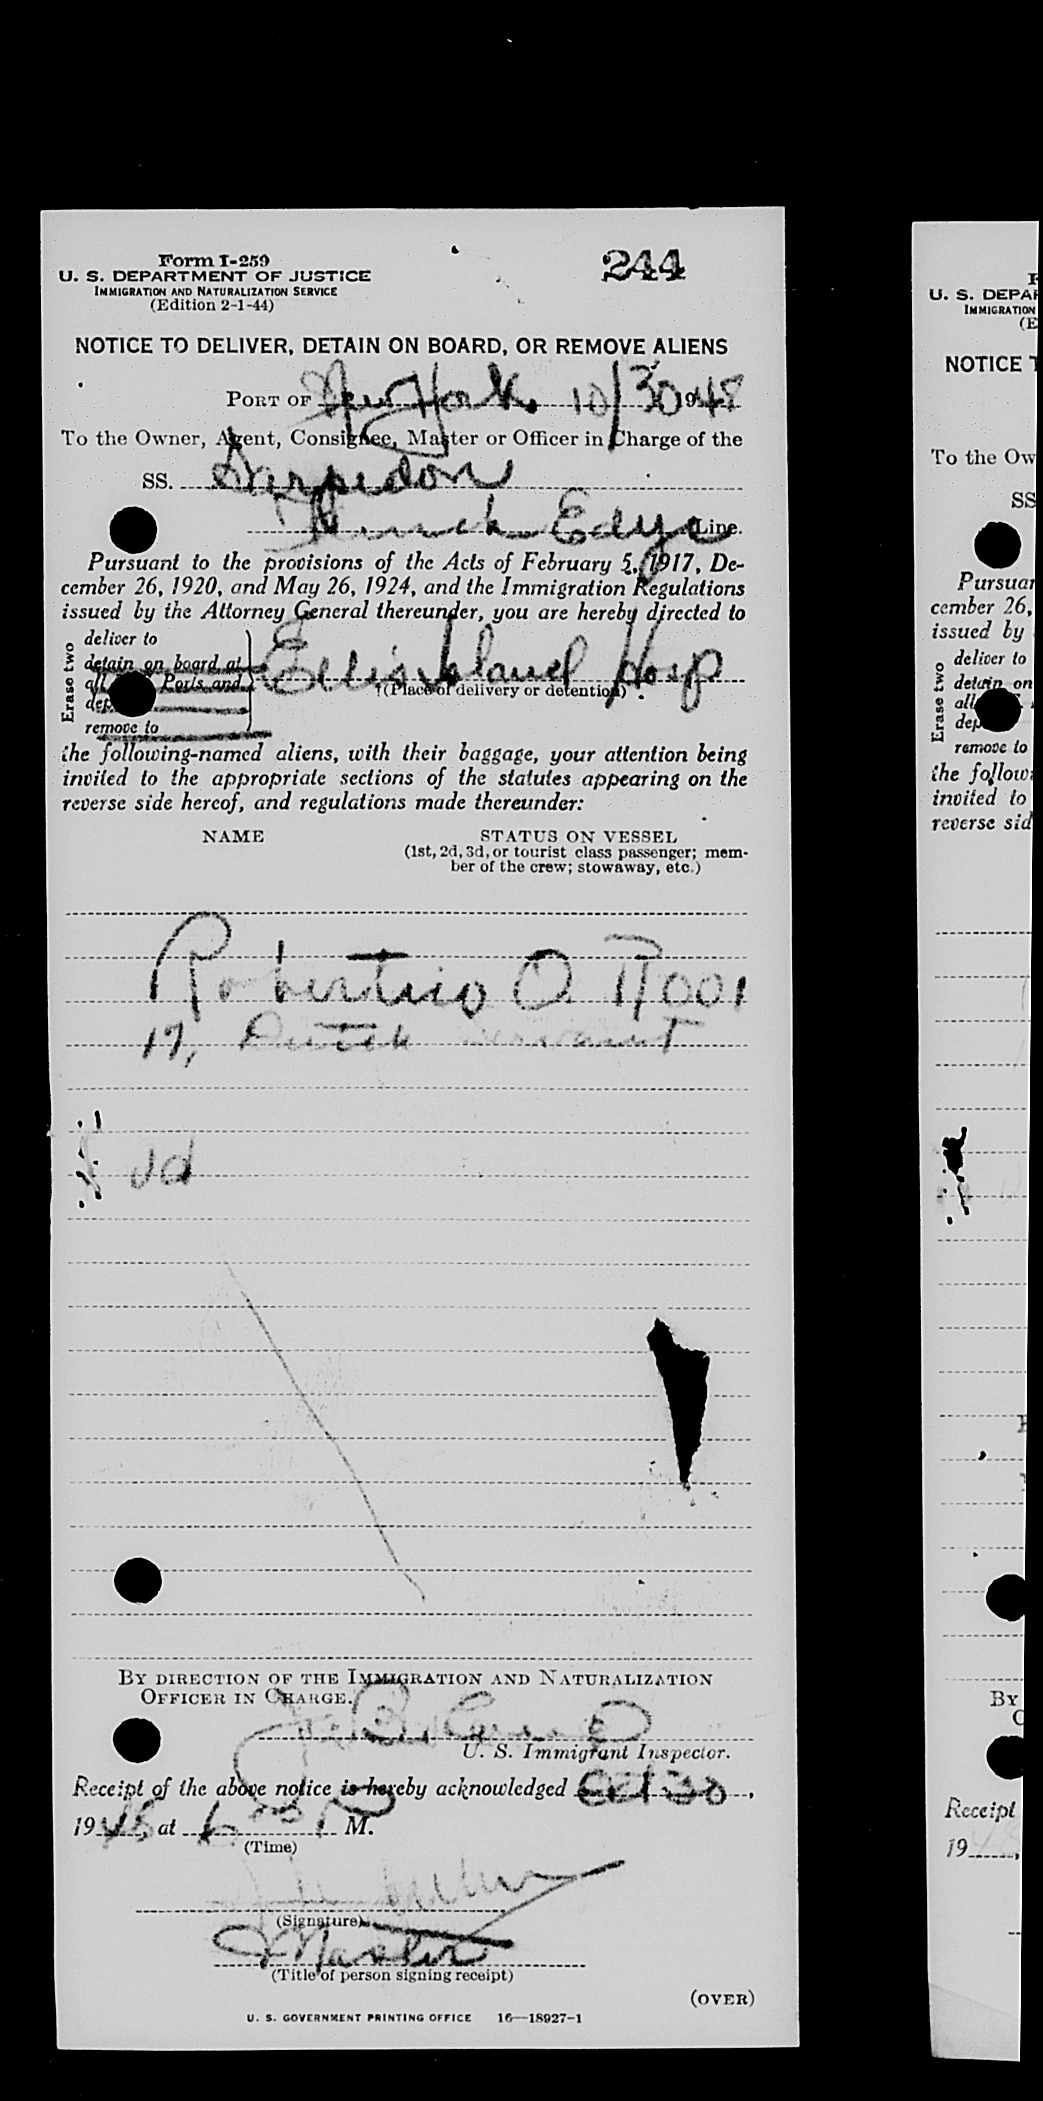 Form I-259
U. S. DEPARTMENT OF JUSTICE
IMMIGRATION AND NATURALIZATION SERVICE
(Edition 2-1-44)
244
NOTICE TO DELIVER, DETAIN ON BOARD, OR REMOVE ALIENS
PORT OF New York. 10/30 48
To the Owner, Agent, Consignee, Master or Officer in Charge of the
SS. Sarpedon
Funch Edye Line.
Pursuant to the provisions of the Acts of February 5, 1917, De-
cember 26, 1920, and May 26, 1924, and the Immigration Regulations
issued by the Attorney General thereunder, you are hereby directed to
Erase two
deliver to
detain on board at
all Ports and
dep
remove to
Ellis Island Hosp
(Place of delivery or detention)
the following-named aliens, with their baggage, your attention being
invited to the appropriate sections of the statutes appearing on the
reverse side hereof, and regulations made thereunder:
NAME
STATUS ON VESSEL
(1st, 2d, 3d, or tourist class passenger; mem-
ber of the crew; stowaway, etc.)
Robertico O. Rooi
17, Dutch servant
BY DIRECTION OF THE IMMIGRATION AND NATURALIZATION
OFFICER IN CHARGE.
U. S. Immigrant Inspector.
Receipt of the above notice is hereby acknowledged Oct 30,
1948, at 6 P M.
(Time)
(Signature)
Master
(Title of person signing receipt)
(OVER)
U. S. GOVERNMENT PRINTING OFFICE 16—18927-1
U. S. DEPAR
IMMIGRATION
(E
NOTICE T
To the Ow
SS
Pursuan
cember 26,
issued by
Erase two
deliver to
detain on
all
dep
remove to
the follow
invited to
reverse sid
By
O
Receipt
19